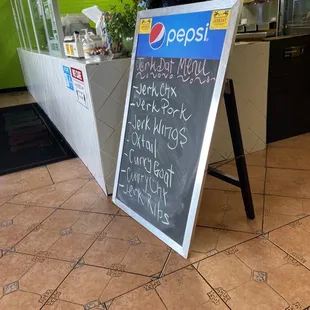 pepsi
Jerk Dat Menu
-Jerk Chx
-Jerk Pork
-Jerk Wings
-Oxtail
-Curry Goat
-Curry Chx
-Jerk Ribs